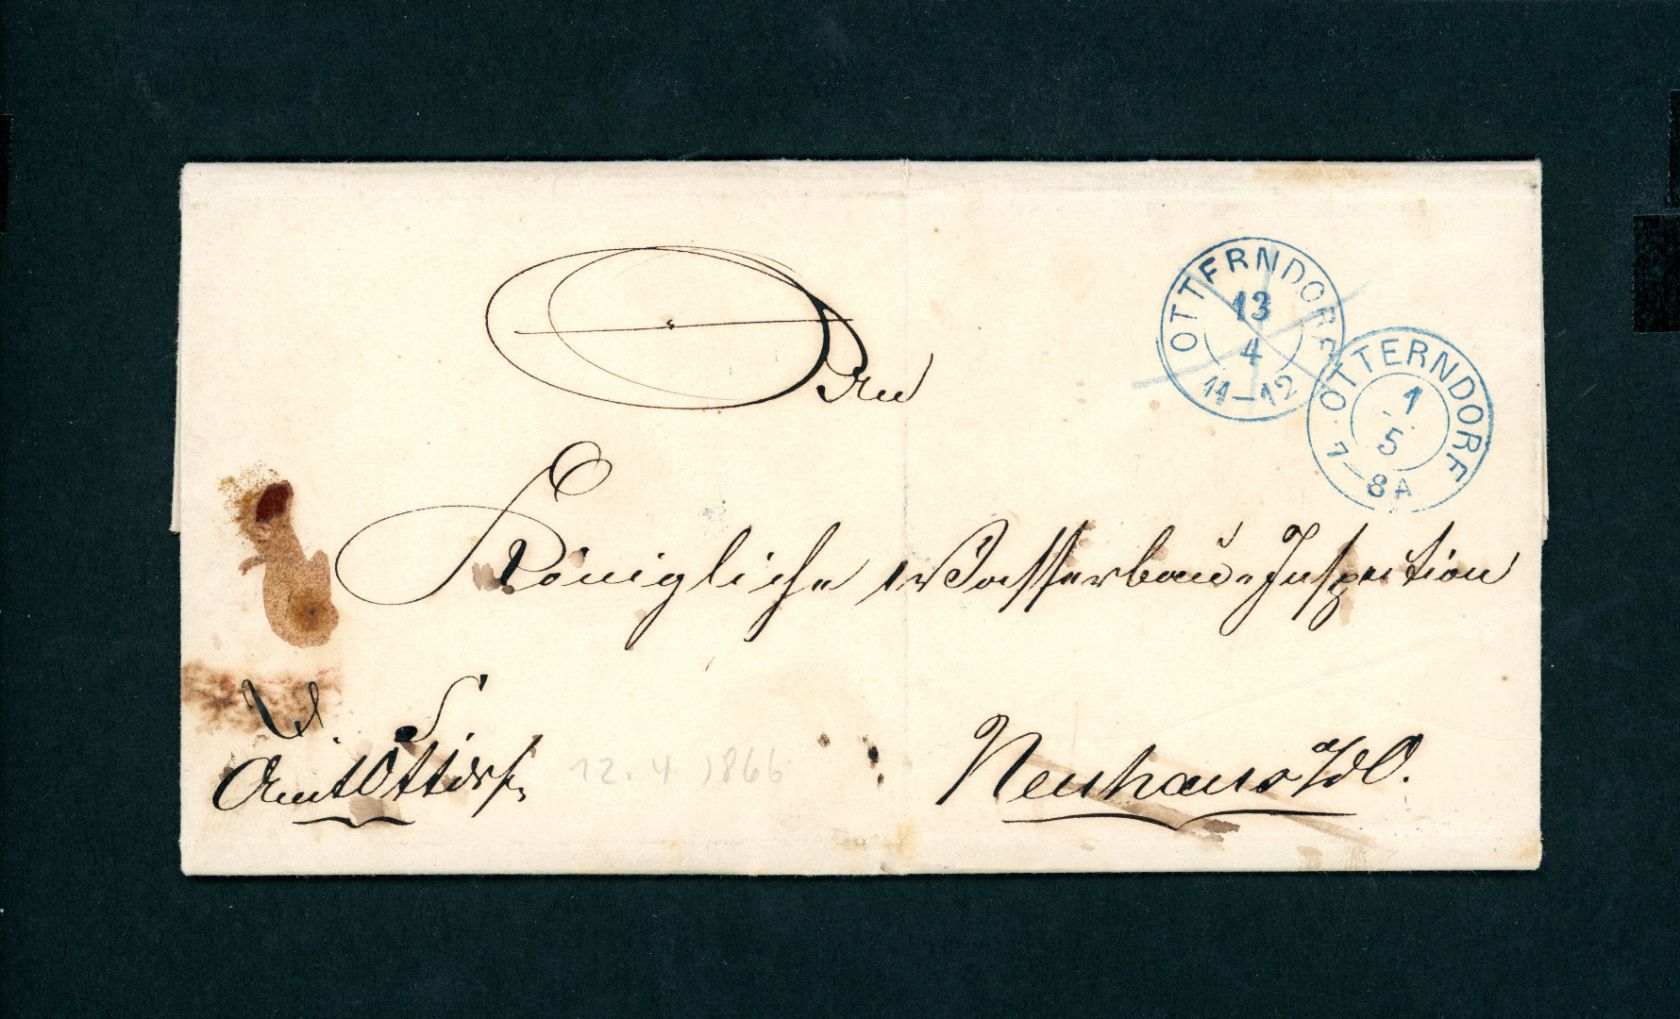 OTTERNDORF
13
4
11-12
OTTERNDORF
1
5
7-8A
An
Königliche Wasserbau-Inspection
Amt Ottdrf.
12.4.1866
Neuhaus a/dO.